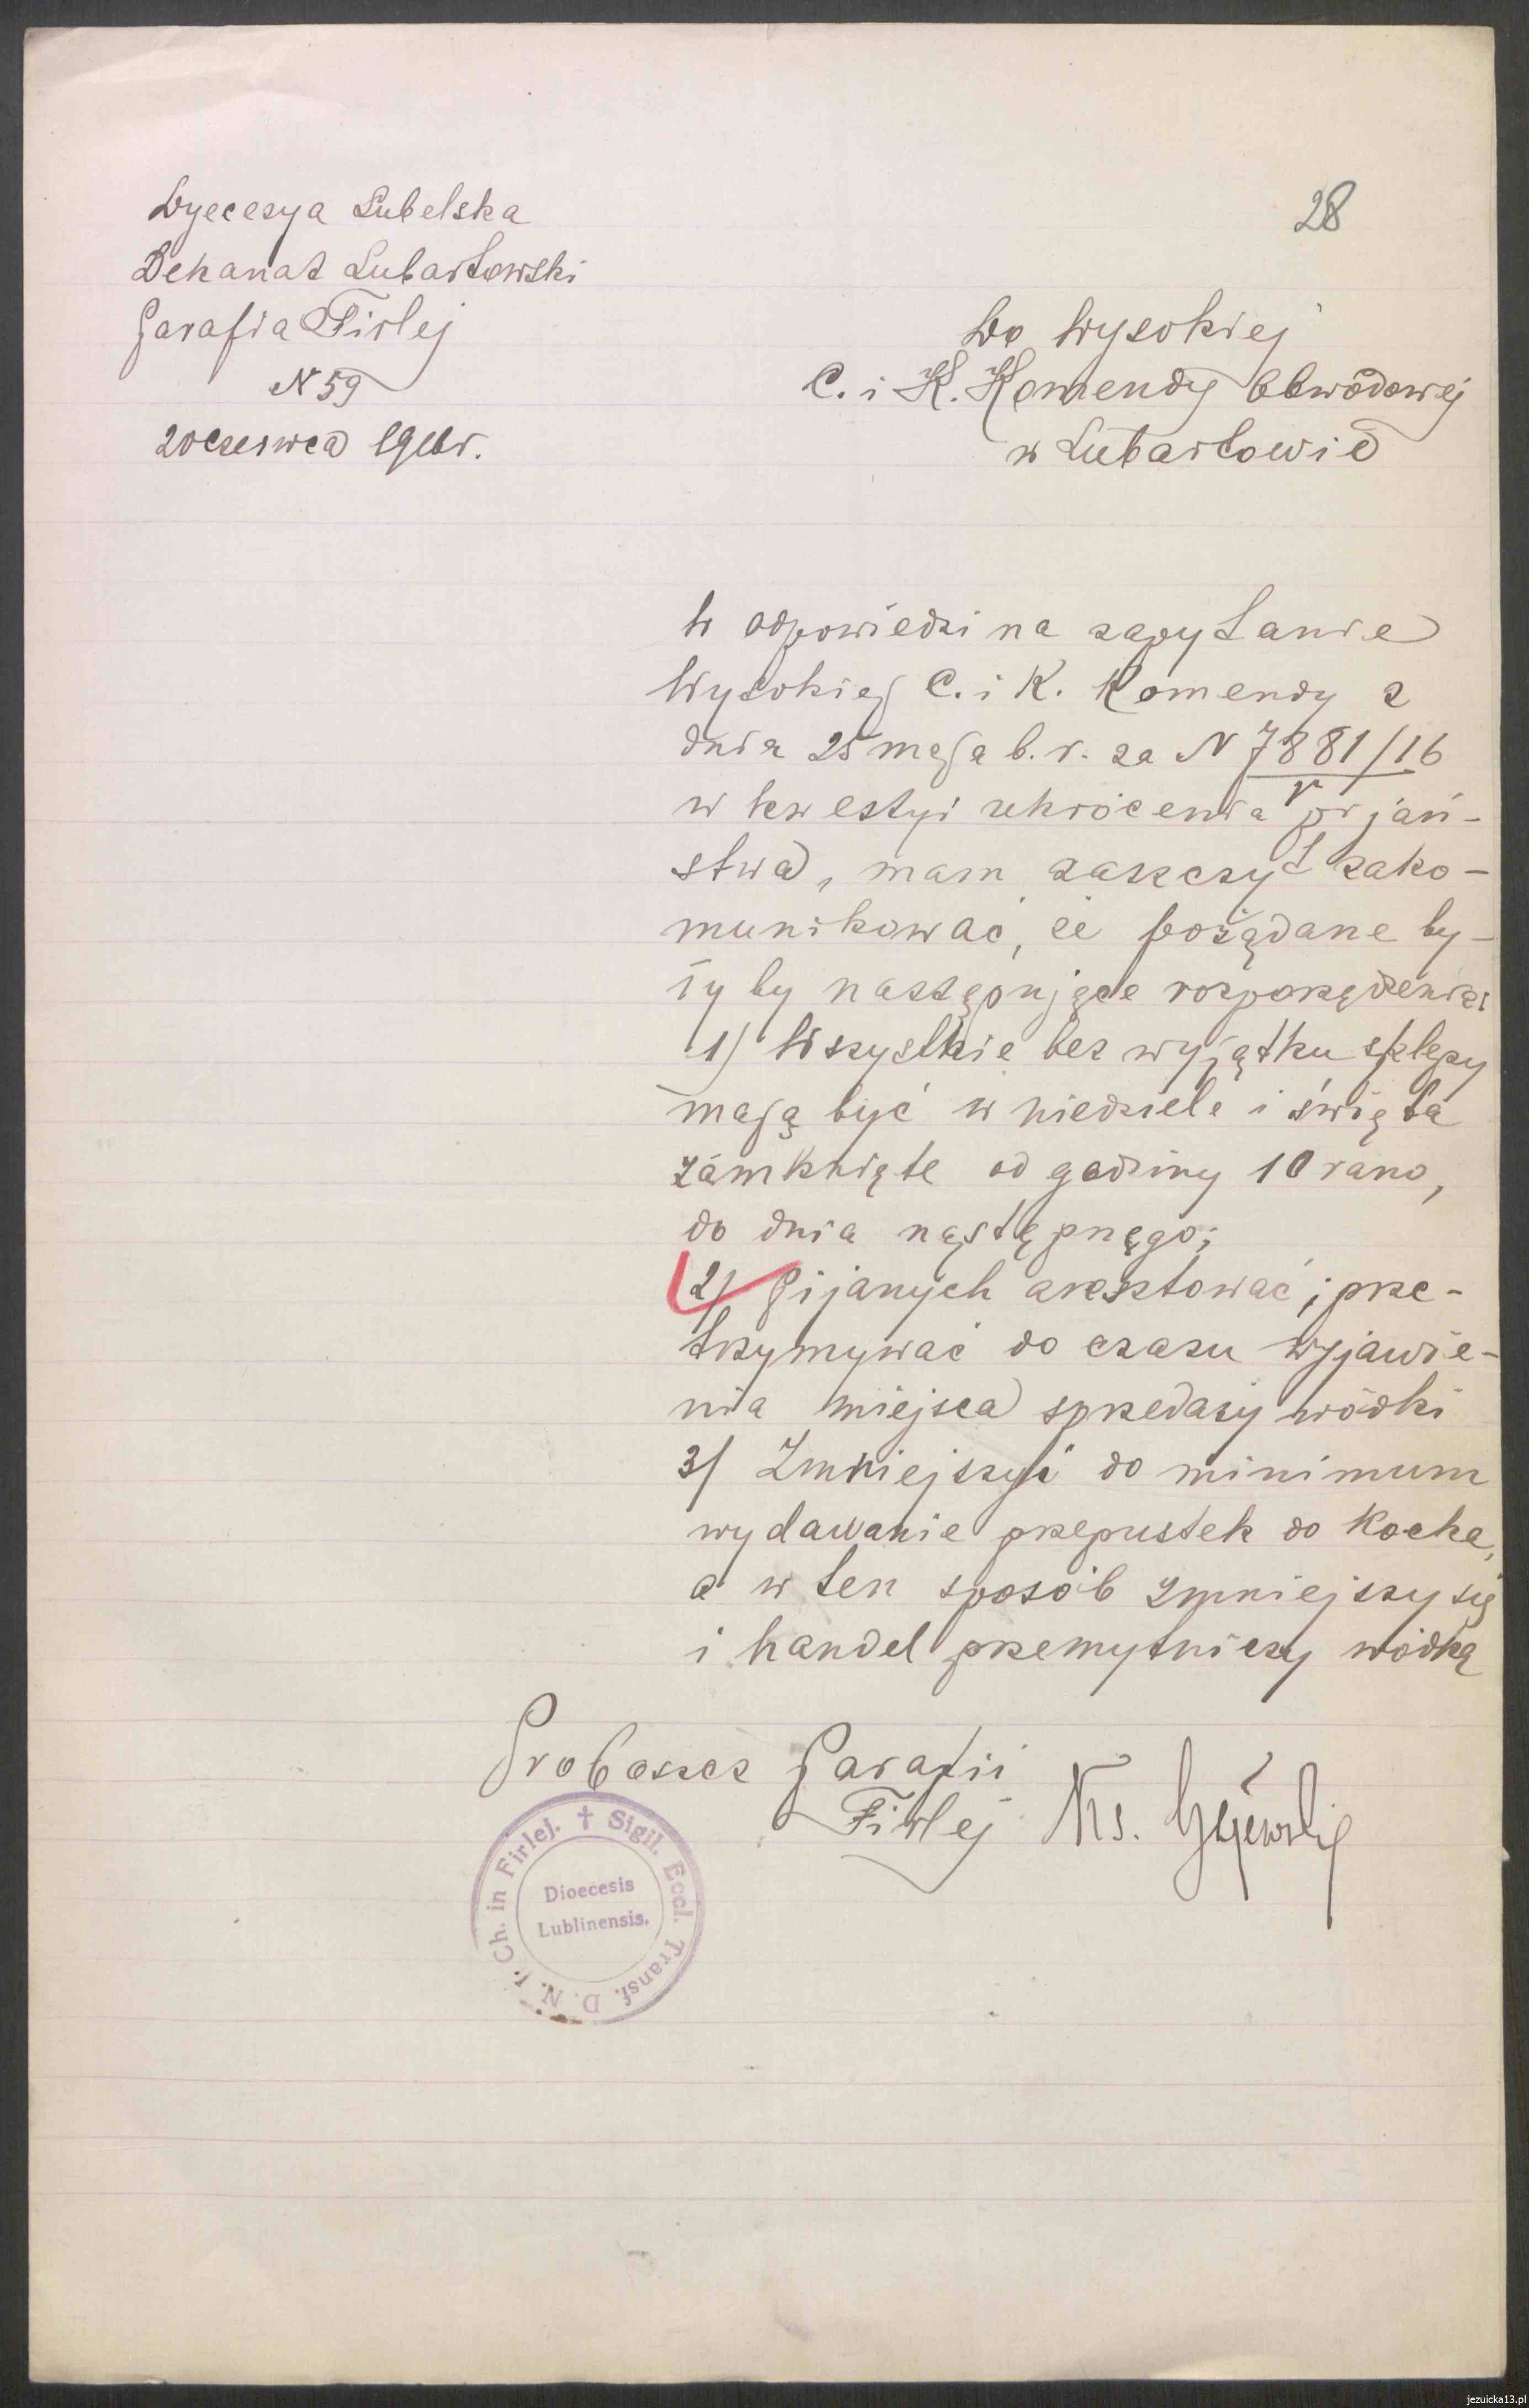 28
Dyecezya Lubelska
Dekanat Lubartowski
Parafia Firlej
N 59
20 czerwca 1916 r.
Do Wysokiej
C. i K. Komendy Obwodowej
w Lubartowie
W odpowiedzi na zapytanie
Wysokiej C. i K. Komendy z
dnia 25 maja b. r. za N 7881/16
w kwestyi ukrócenia pijań-
stwa, mam zaszczyt zako-
munikować, że pożądane by-
ły by następujące rozporządzenia:
1) Wszystkie bez wyjątku sklepy
mają być w niedziele i święta
zamknięte od godziny 10 rano,
do dnia następnego;
2) Pijanych aresztować i prze-
trzymywać do czasu wyjawie-
nia miejsca sprzedaży wódki
3) Zmniejszyć do minimum
wydawanie przepustek do Kocka,
a w ten sposób zmniejszy się
i handel przemytniczy wódką
Proboszcz Parafii
Firlej Ks.
✝ Sigil. Eccl. Transf. D. N. J. Ch. in Firlej.
Dioecesis
Lublinensis.
jezuicka13.pl